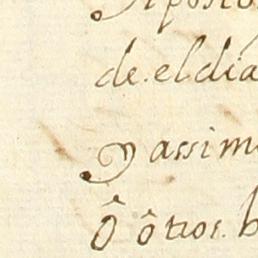 Aposto
de el dia
y assim
Ô ôtros. h